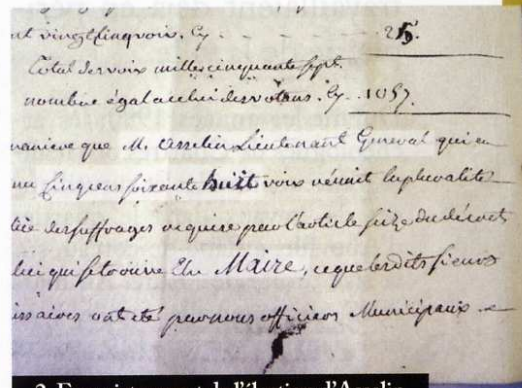 nt vingt cinq voix. Cy - - - - 25.
Total des voix mille cinquante sept.
nombre égal a celui des votans. Cy. 1057.
maniere que M. Asselin Lieutenant General qui en
nu cinq cens soixante huit voix réunit la pluralité
des suffrages requise par l'article seize du décret
lui qui se trouve Elu Maire, ce que lesdits sieurs
issaires ont été par nous officiers Municipaux
2. Enregistrement de l'élection d'Asselin